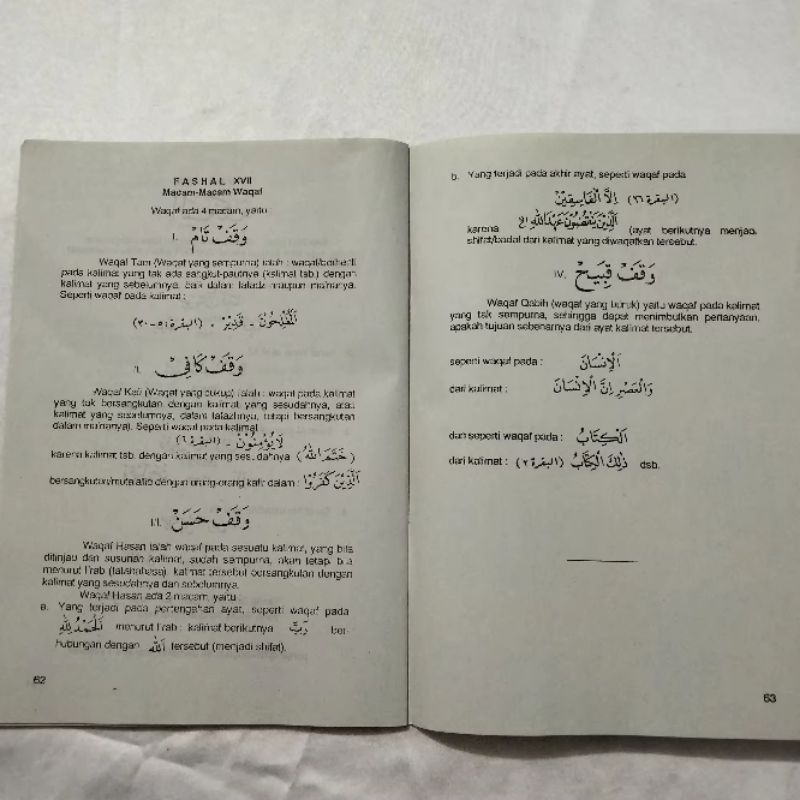 FASHAL XVII
Macam-Macam Waqaf
Waqaf ada 4 macam, yaitu
I. وَقَفْ تَامْ
Waqaf Tam (Waqaf yang sempurna) ialah : waqaf/berhenti
pada kalimat yang tak ada sangkut-pautnya (kalimat tsb.) dengan
kalimat yang sebelumnya, baik dalam lafadz maupun ma'nanya.
Seperti waqaf pada kalimat :
اَلْمُفْلِحُوْنَ - قَدِيْرٌ - (البقرة : ٥ - ٢٠)
وَقَفْ كَافِيْ
Waqaf Kafi (Waqaf yang cukup) ialah : waqaf pada kalimat
yang tak bersangkutan dengan kalimat yang sesudahnya, atau
kalimat yang sebelumnya, dalam lafazhnya, tetapi bersangkutan
dalam ma'nanya). Seperti waqaf pada kalimat
لَا يُؤْمِنُوْنَ - (البقرة ٦)
karena kalimat tsb. dengan kalimat yang sesudahnya (خَتَمَ اللهُ)
bersangkutan/muta'alliq dengan orang-orang kafir dalam : اَلَّذِيْنَ كَفَرُوْا
III. وَقَفْ حَسَنْ
Waqaf Hasan ialah waqaf pada sesuatu kalimat, yang bila
ditinjau dari susunan kalimat, sudah sempurna, akan tetapi bila
menurut I'rab (tatabahasa), kalimat tersebut bersangkutan dengan
kalimat yang sesudahnya dan sebelumnya.
Waqaf Hasan ada 2 macam, yaitu :
a. Yang terjadi pada pertengahan ayat, seperti waqaf pada
اَلْحَمْدُ لِلّٰهِ menurut I'rab : kalimat berikutnya رَبِّ ber-
hubungan dengan اَللّٰه tersebut (menjadi shifat).
62
b. Yang terjadi pada akhir ayat, seperti waqaf pada
اِلَّا الْفَاسِقِيْنَ (البقرة ٢٦)
karena اَلَّذِيْنَ يَنْقُضُوْنَ عَهْدَ اللهِ الخ (ayat berikutnya menjadi
shifat/badal dari kalimat yang diwaqafkan tersebut.
IV. وَقَفْ قَبِيْحْ
Waqaf Qabih (waqaf yang buruk) yaitu waqaf pada kalimat
yang tak sempurna, sehingga dapat menimbulkan pertanyaan,
apakah tujuan sebenarnya dari ayat kalimat tersebut.
seperti waqaf pada : اَلْاِنْسَانَ
dari kalimat : وَالْعَصْرِ اِنَّ الْاِنْسَانَ
dan seperti waqaf pada : اَلْكِتَابُ
dari kalimat : ذٰلِكَ الْكِتَابُ (البقرة ٢) dsb.
63